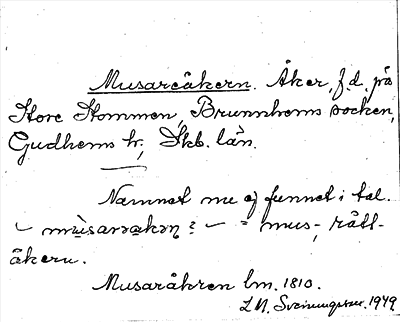 Musareåkern. Åker, f.d. på
Stora Stommen, Brunnhems socken,
Gudhems hr, Skb. län.
Namnet nu ej funnet i tal.
= mus-, rått-
åkern.
Musaråkren lm. 1810.
1949